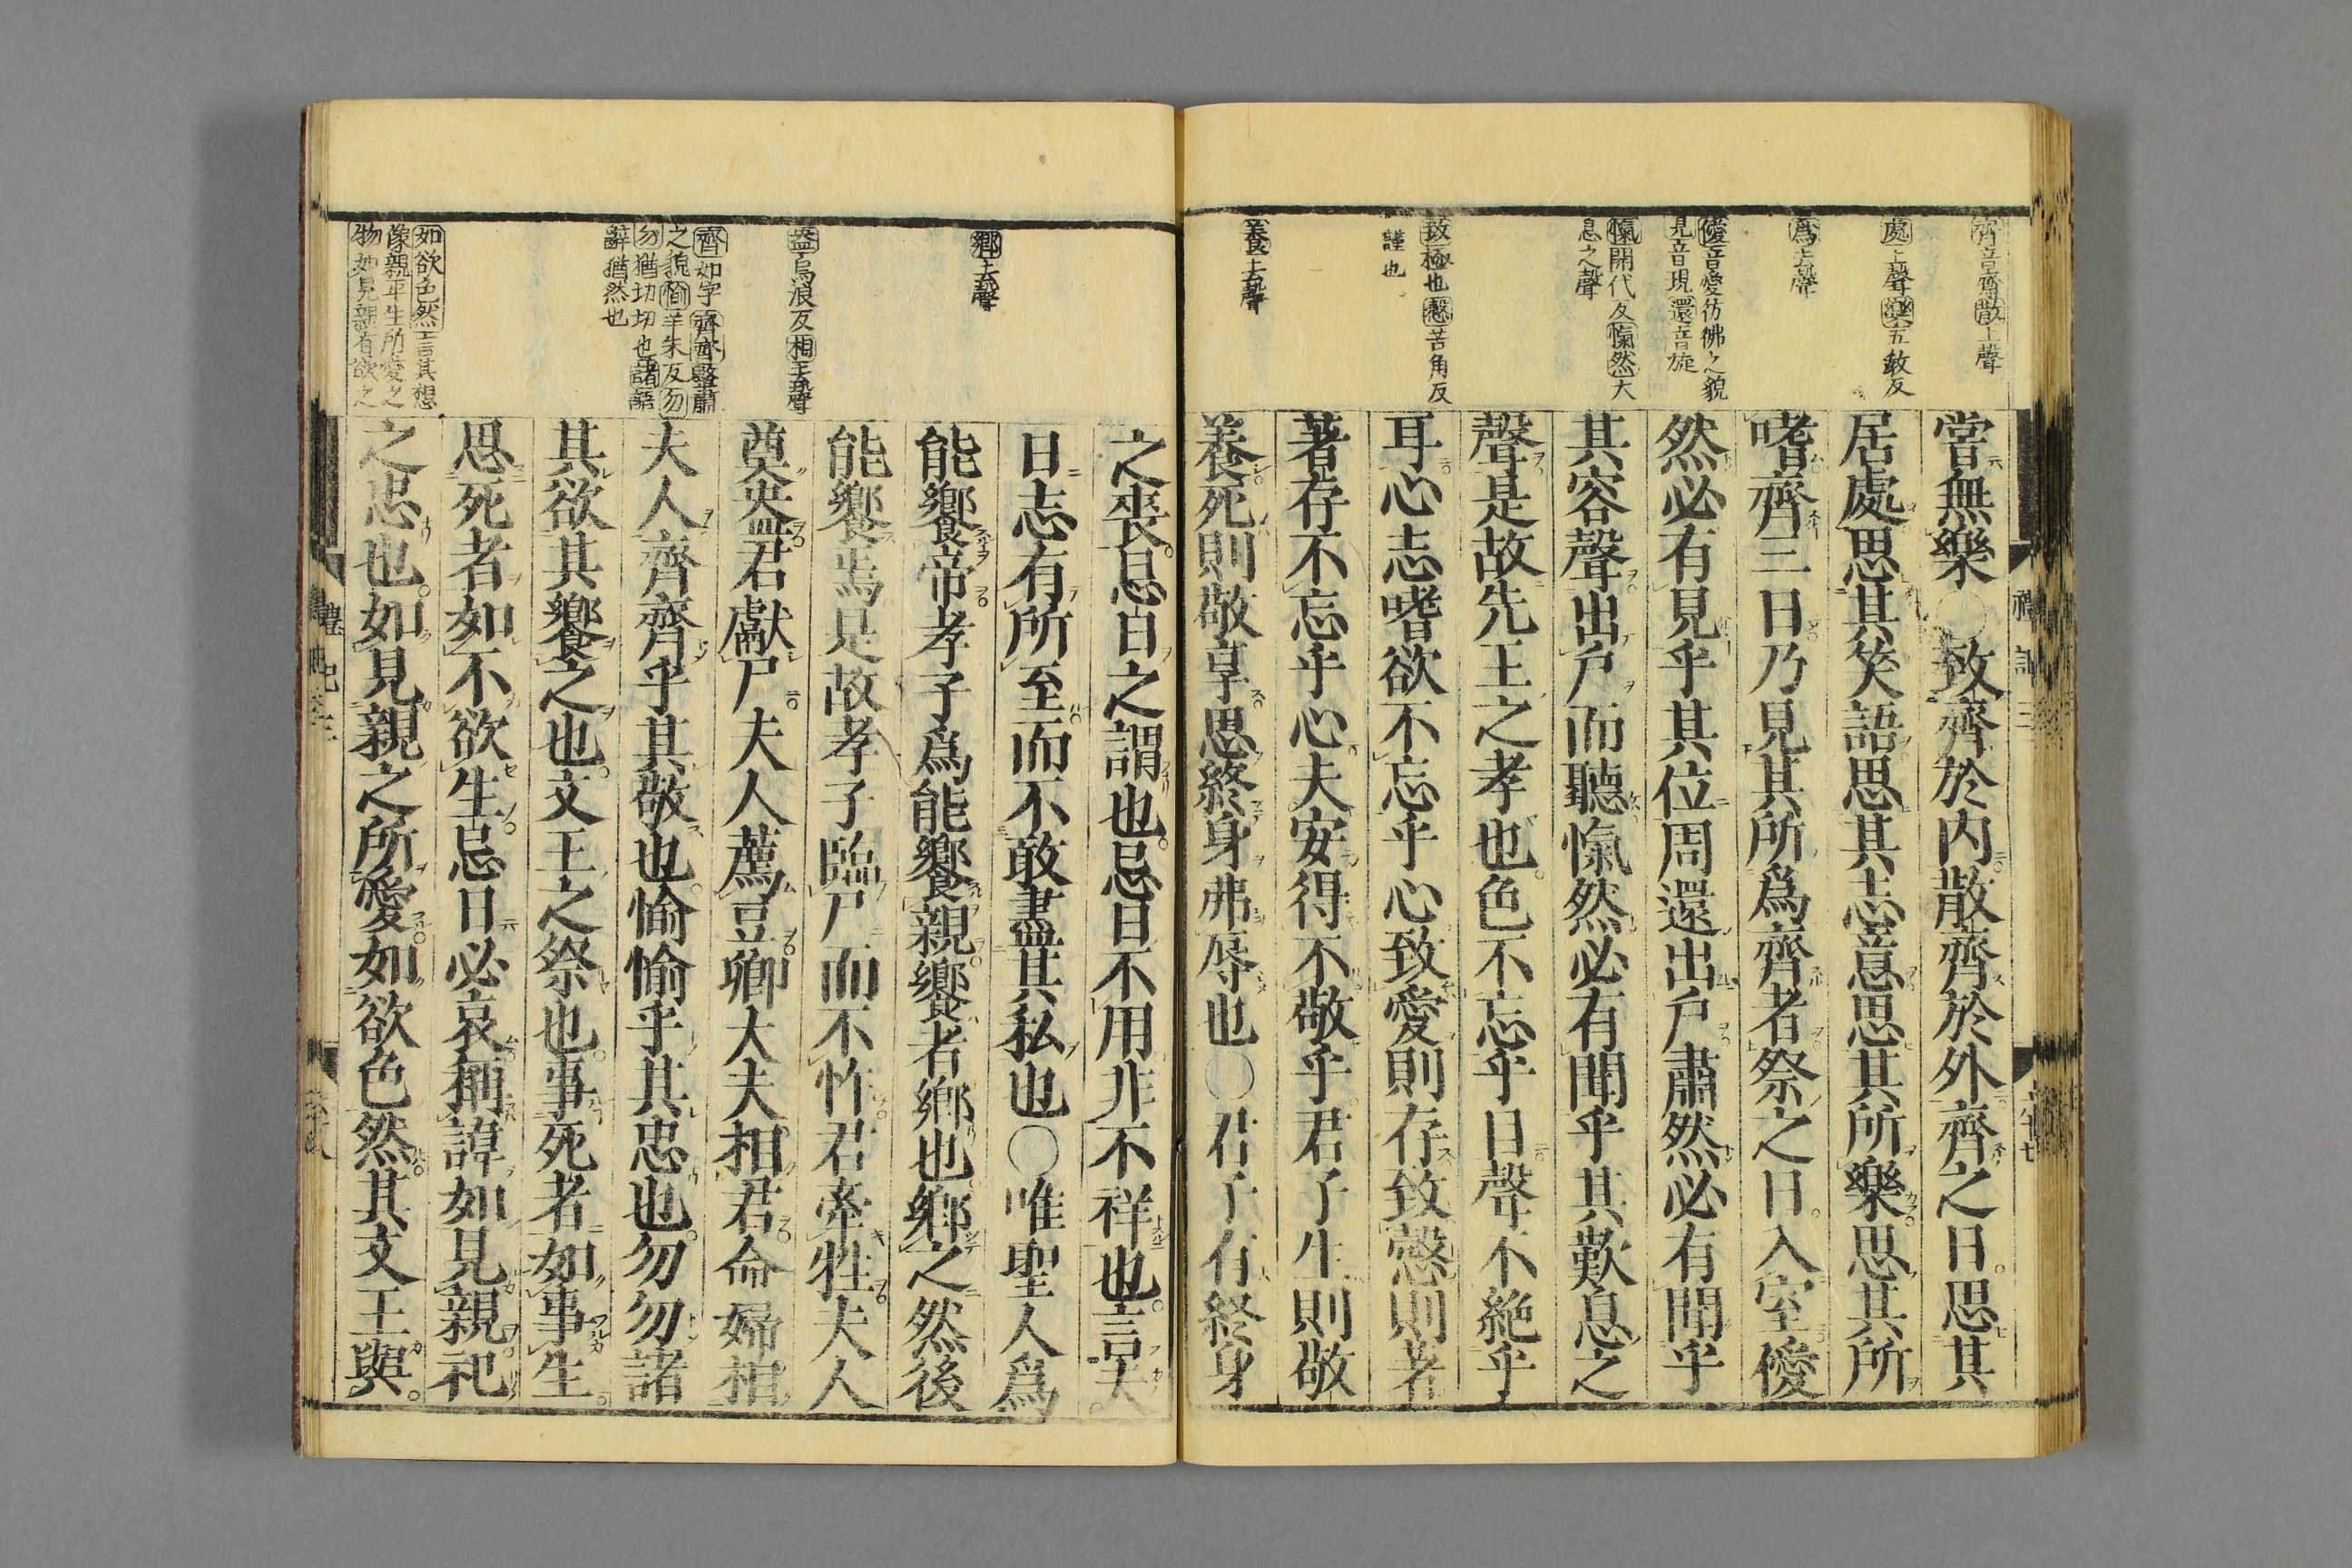 齊音齋散上聲
處上聲樂五教反
爲去聲
僾音愛彷彿之貌
見音現還音旋
愾開代反愾然大
息之聲
致極也慤苦角反
謹也
養去聲
嘗無樂○致齊於内散齊於外齊之日思其
居處思其笑語思其志意思其所樂思其所
嗜齊三日乃見其所爲齊者祭之日入室僾
然必有見乎其位周還出戸肅然必有聞乎
其容聲出戸而聽愾然必有聞乎其歎息之
聲是故先王之孝也色不忘乎目聲不絶乎
耳心志嗜欲不忘乎心致愛則存致慤則著
著存不忘乎心夫安得不敬乎君子生則敬
養死則敬享思終身弗辱也○君子有終身
禮記三
鄉去聲
盎烏浪反相去聲
齊如字齊齊整肅
之貌愉羊朱反勿
勿猶切切也諸語
辭猶然也
如欲色然言其想
像親平生所愛之
物如見親有欲之
之喪忌日之謂也忌日不用非不祥也言夫
日志有所至而不敢盡其私也○唯聖人爲
能饗帝孝子爲能饗親饗者鄉也鄉之然後
能饗焉是故孝子臨尸而不怍君牽牲夫人
奠盎君獻尸夫人薦豆卿大夫相君命婦相
夫人齊齊乎其敬也愉愉乎其忠也勿勿諸
其欲其饗之也文王之祭也事死者如事生
思死者如不欲生忌日必哀稱諱如見親祀
之忠也如見親之所愛如欲色然其文王與